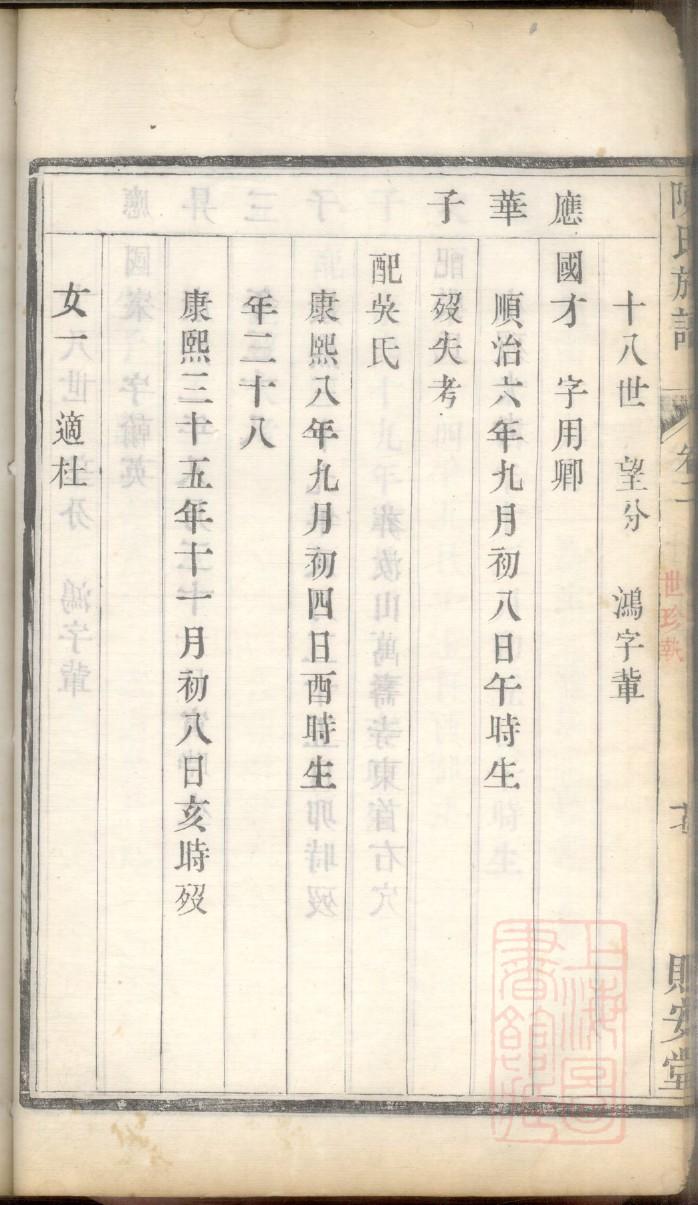 陳氏族譜
卷二
世珍執
貽安堂
十八世 望分 鴻字輩
應 國才 字用卿
華 順治六年九月初八日午時生
子 歿失考
配吳氏
康熙八年九月初四日酉時生
年二十八
康熙三十五年十一月初八日亥時歿
女一 適杜
上海圖書館藏